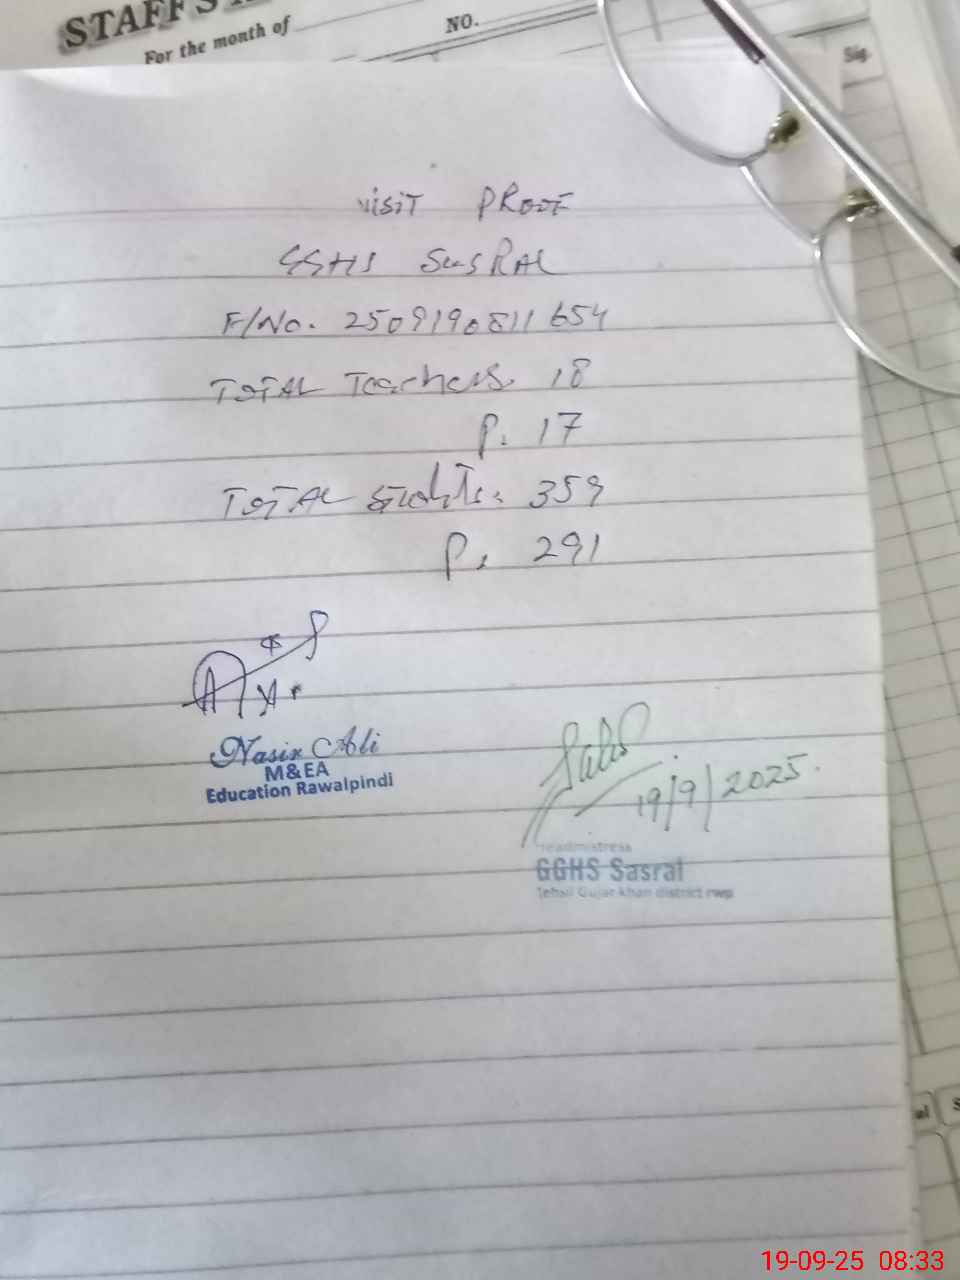 STAFF'S
For the month of
NO.
Sig.
VISIT PROOF
GGHS SUSRAL
F/No. 250919081654
TOTAL Teachers. 18
P. 17
TOTAL Students. 359
P. 291
Nasir Ali
M&EA
Education Rawalpindi
19/9/2025.
Headmistress
GGHS Sasral
Tehsil Gujar khan district rwp
19-09-25 08:33